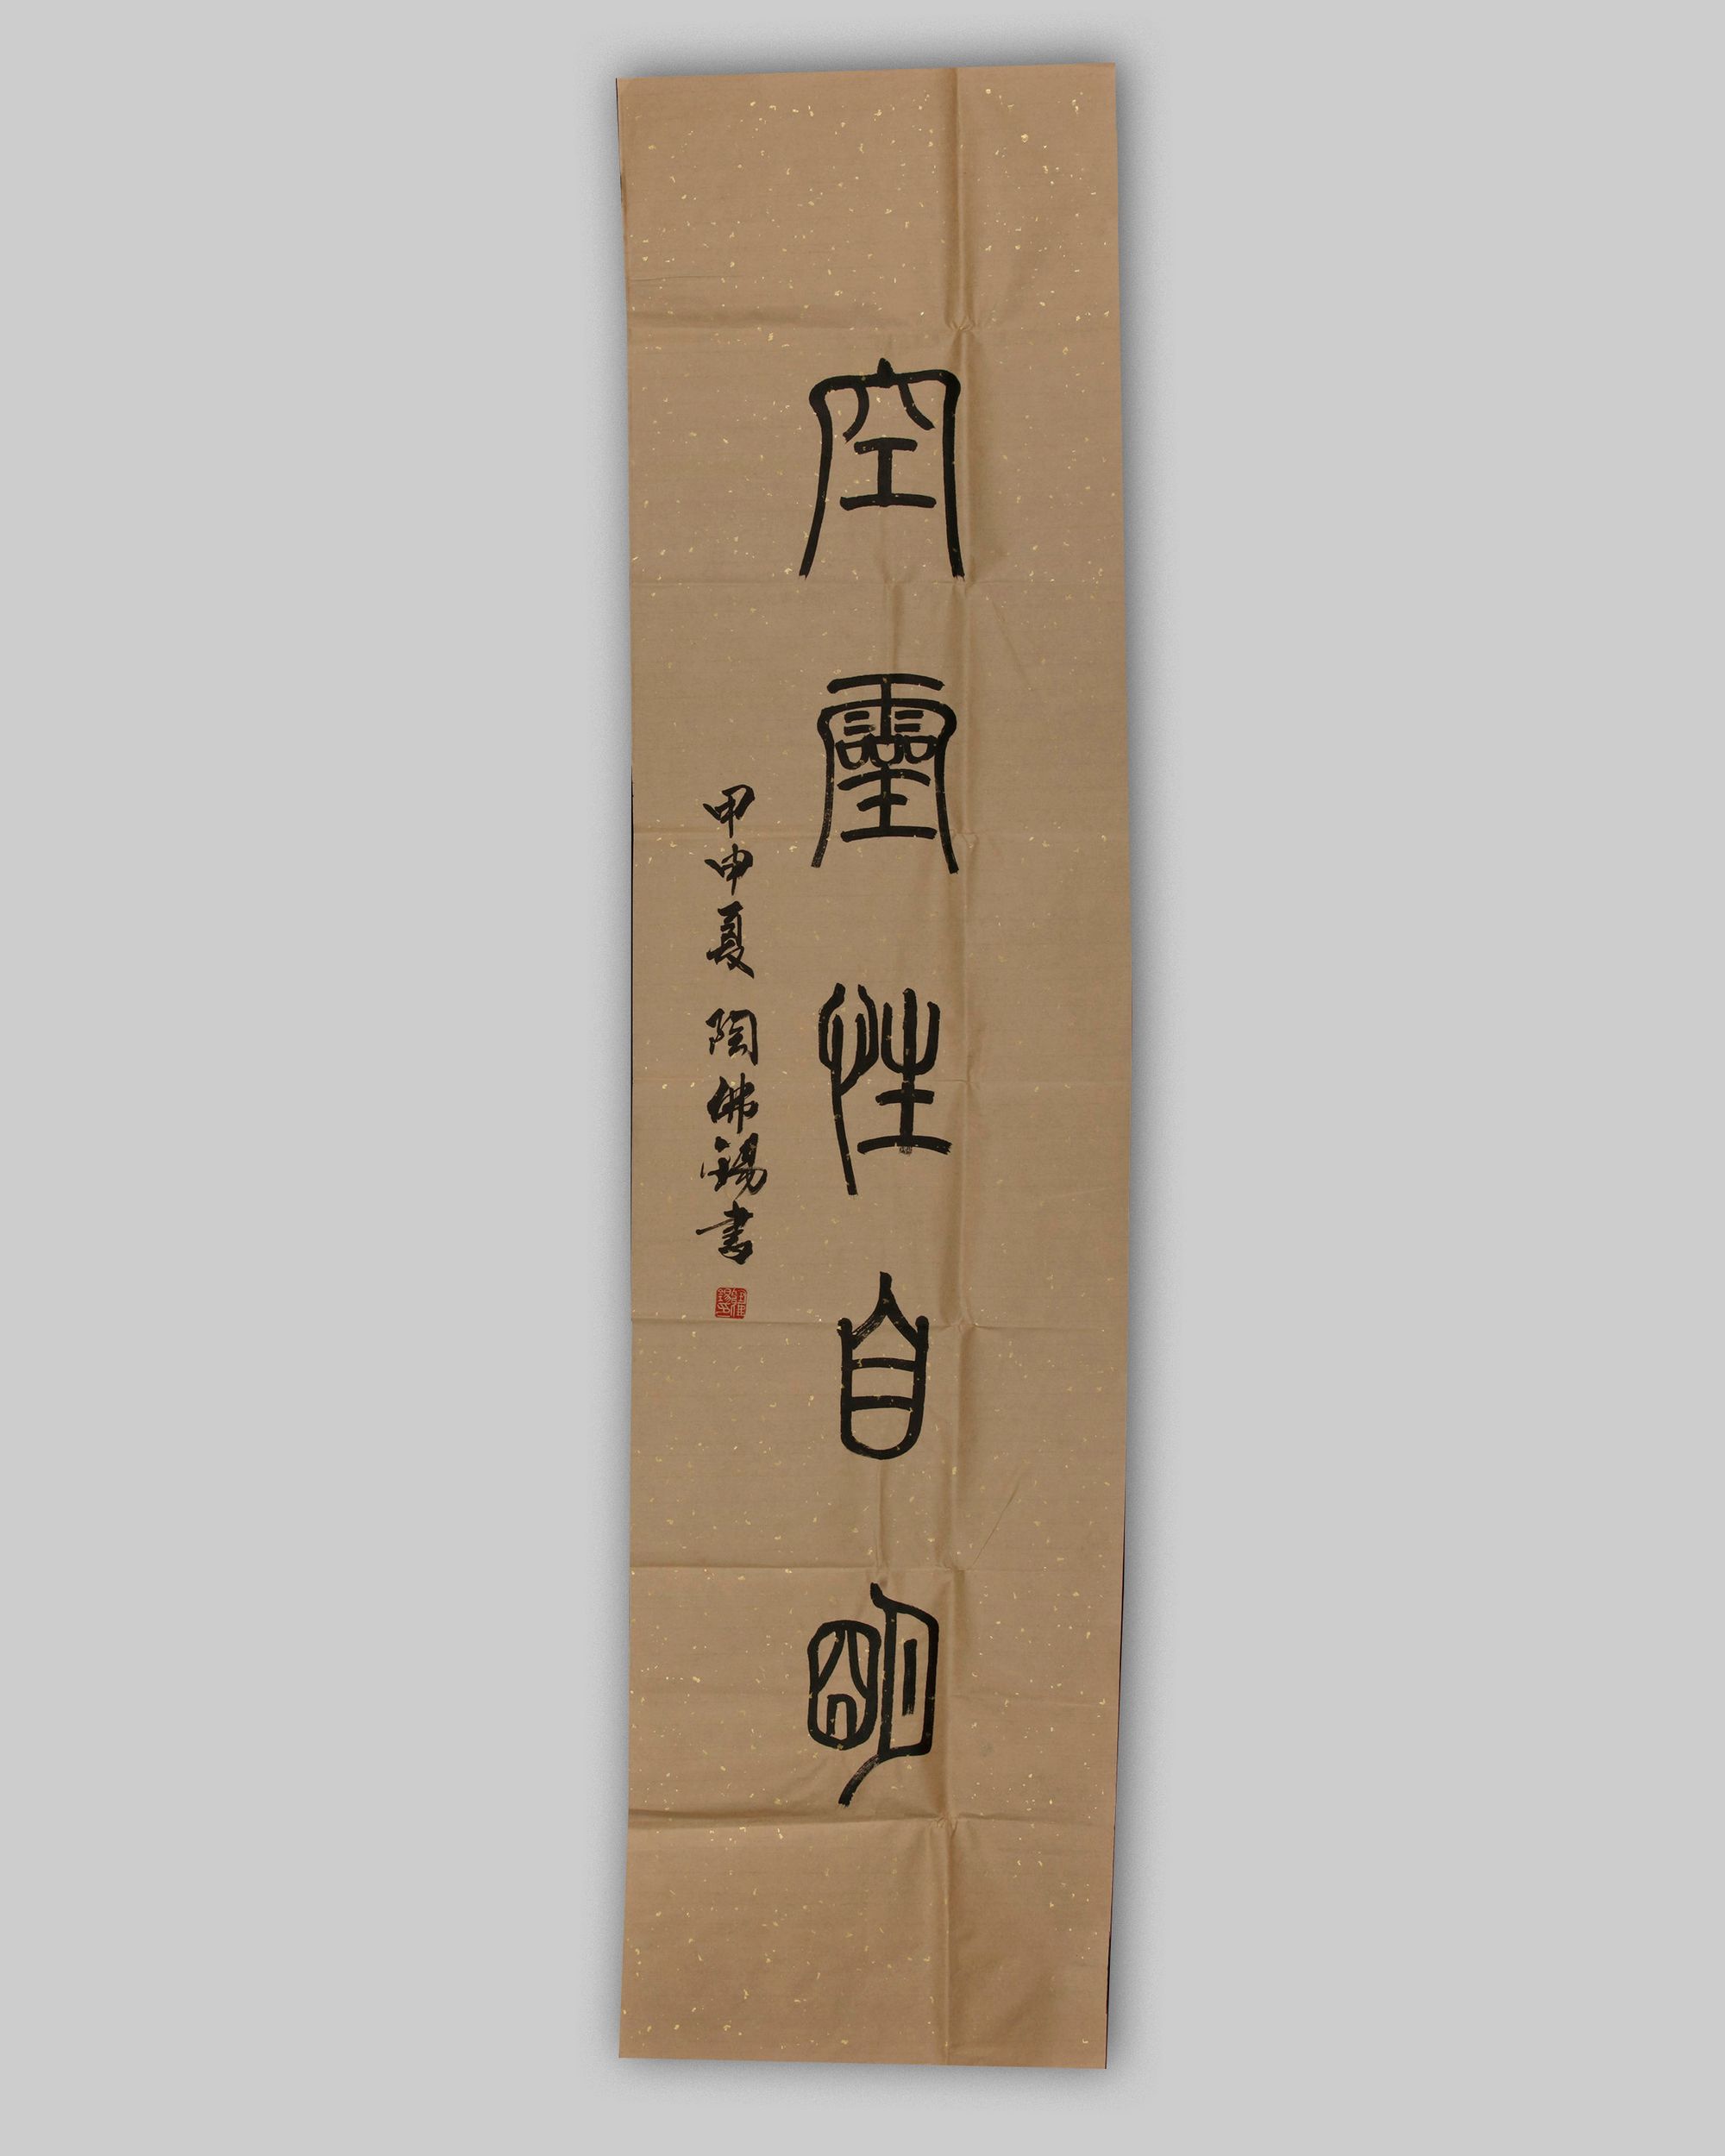 空靈性自明
甲申夏 陶佛錫書